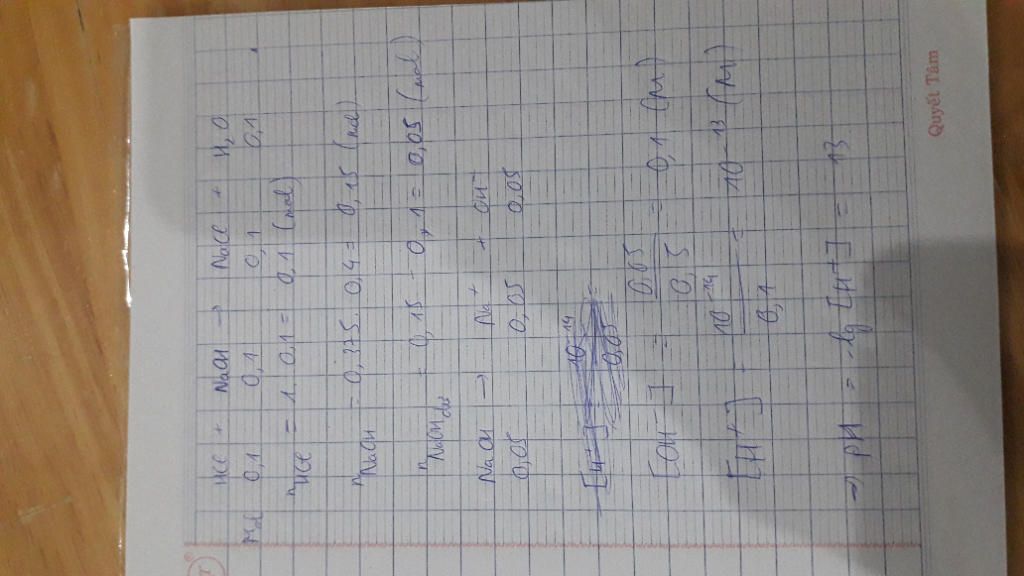 HCl + NaOH → NaCl + H₂O
Mol 0,1 0,1 0,1 0,1
nHCl = 1. 0,1 = 0,1 (mol)
nNaOH = 0,375. 0,4 = 0,15 (mol)
nNaOH dư = 0,15 - 0,1 = 0,05 (mol)
NaOH → Na⁺ + OH⁻
0,05 0,05 0,05
[H⁺] = 10⁻¹⁴ / 0,05 =
[OH⁻] = 0,05 / 0,5 = 0,1 (M)
[H⁺] = 10⁻¹⁴ / 0,1 = 10⁻¹³ (M)
→ pH = -lg [H⁺] = 13
Quyết Tâm